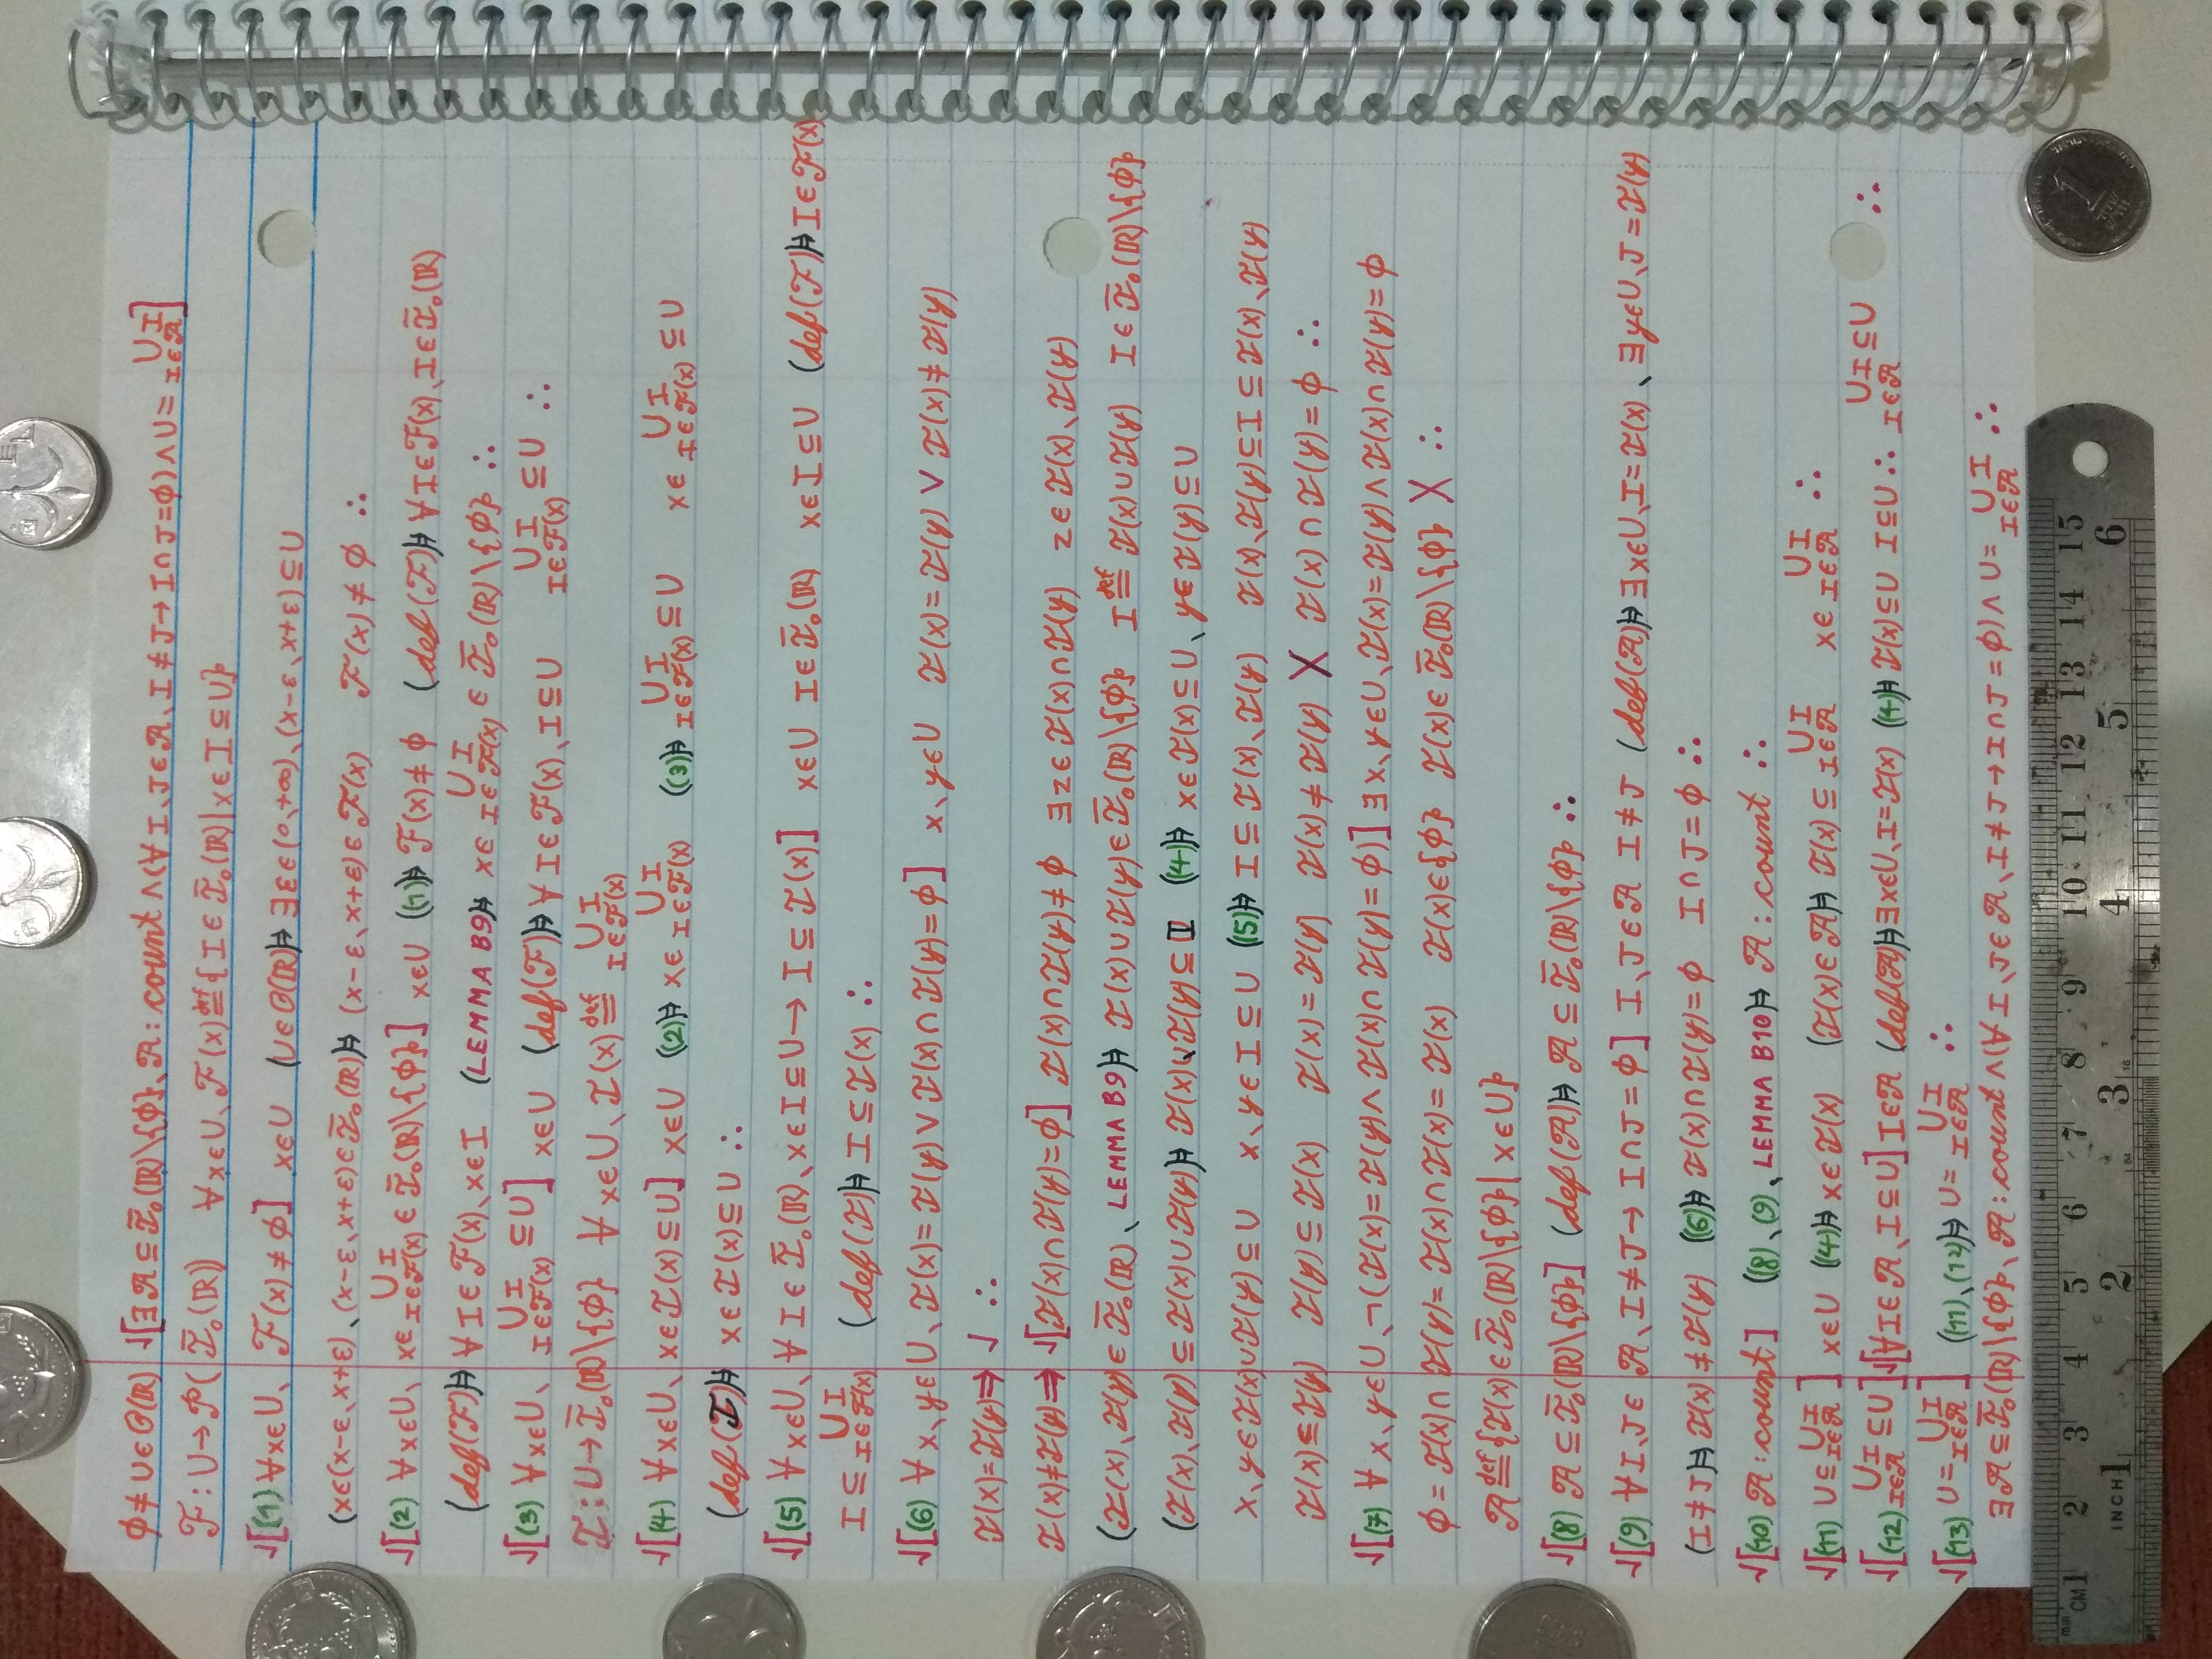 ϕ ≠ U ∈ 𝒪(ℝ) √[∃ 𝒜 ⊆ Ī₀(ℝ)\{ϕ}、𝒜: count ∧ (∀ I、J ∈ 𝒜、I ≠ J → I ∩ J = ϕ) ∧ U = ∪ I I∈𝒜]
ℱ: U → 𝒫(Ī₀(ℝ)) ∀ x∈U、ℱ(x) ≝ {I ∈ Ī₀(ℝ) | x∈I ⊆ U}
√[(1) ∀ x∈U、ℱ(x) ≠ ϕ] x∈U (U∈𝒪(ℝ)⊨ ∃ ε∈(0、+∞)、(x-ε、x+ε) ⊆ U
(x∈(x-ε、x+ε)、(x-ε、x+ε)∈Ī₀(ℝ)⊨ (x-ε、x+ε) ∈ ℱ(x) ℱ(x) ≠ ϕ ∴
√[(2) ∀ x∈U、x∈ ∪ I I∈ℱ(x) ∈ Ī₀(ℝ)\{ϕ}] x∈U ((1)⊨ ℱ(x) ≠ ϕ (def(ℱ)⊨ ∀ I∈ℱ(x)、I∈Ī₀(ℝ)
(def(ℱ)⊨ ∀ I∈ℱ(x)、x∈I (LEMMA B9⊨ x∈ ∪ I I∈ℱ(x) ∈ Ī₀(ℝ)\{ϕ} ∴
√[(3) ∀ x∈U、∪ I I∈ℱ(x) ⊆ U] x∈U (def(ℱ)⊨ ∀ I∈ℱ(x)、I ⊆ U ∪ I I∈ℱ(x) ⊆ U ∴
ℐ: U → Ī₀(ℝ)\{ϕ} ∀ x∈U、ℐ(x) ≝ ∪ I I∈ℱ(x)
√[(4) ∀ x∈U、x∈ℐ(x) ⊆ U] x∈U ((2)⊨ x∈ ∪ I I∈ℱ(x) ((3)⊨ ∪ I I∈ℱ(x) ⊆ U x∈ ∪ I I∈ℱ(x) ⊆ U
(def(ℐ)⊨ x∈ℐ(x) ⊆ U ∴
√[(5) ∀ x∈U、∀ I∈Ī₀(ℝ)、x∈I ⊆ U → I ⊆ ℐ(x)] x∈U I∈Ī₀(ℝ) x∈I ⊆ U (def(ℱ)⊨ I∈ℱ(x)
I ⊆ ∪ I I∈ℱ(x) (def(ℐ)⊨ I ⊆ ℐ(x) ∴
√[(6) ∀ x、y∈U、ℐ(x) = ℐ(y) ∨ ℐ(x) ∩ ℐ(y) = ϕ] x、y∈U ℐ(x) = ℐ(y) ∨ ℐ(x) ≠ ℐ(y)
ℐ(x) = ℐ(y) ⇒ √ ∴
ℐ(x) ≠ ℐ(y) ⇒ √[ℐ(x) ∩ ℐ(y) = ϕ] ℐ(x) ∩ ℐ(y) ≠ ϕ ∃ z∈ℐ(x) ∩ ℐ(y) z∈ℐ(x)、ℐ(y)
(ℐ(x)、ℐ(y)∈Ī₀(ℝ)、LEMMA B9⊨ ℐ(x) ∪ ℐ(y)∈Ī₀(ℝ)\{ϕ} I ≝ ℐ(x) ∪ ℐ(y) I∈Ī₀(ℝ)\{ϕ}
(ℐ(x)、ℐ(y) ⊆ ℐ(x) ∪ ℐ(y)⊨ ℐ(x)、ℐ(y) ⊆ I ((4)⊨ x∈ℐ(x) ⊆ U、y∈ℐ(y) ⊆ U
x、y∈ℐ(x) ∪ ℐ(y) ⊆ U x、y∈I ⊆ U ((5)⊨ I ⊆ ℐ(x)、ℐ(y) ℐ(x)、ℐ(y) ⊆ I ⊆ ℐ(x)、ℐ(y)
ℐ(x) ⊆ ℐ(y) ℐ(y) ⊆ ℐ(x) ℐ(x) = ℐ(y) ℐ(x) ≠ ℐ(y) X ℐ(x) ∩ ℐ(y) = ϕ ∴
√[(7) ∀ x、y∈U、¬(ℐ(x) = ℐ(y) ∧ ℐ(x) ∩ ℐ(y) = ϕ)] ∃ x、y∈U、ℐ(x) = ℐ(y) ∧ ℐ(x) ∩ ℐ(y) = ϕ
ϕ = ℐ(x) ∩ ℐ(y) = ℐ(x) ∩ ℐ(x) = ℐ(x) ℐ(x)∈{ϕ} ℐ(x)∈Ī₀(ℝ)\{ϕ} X ∴
𝒜 ≝ {ℐ(x)∈Ī₀(ℝ)\{ϕ} | x∈U}
√[(8) 𝒜 ⊆ Ī₀(ℝ)\{ϕ}] (def(𝒜)⊨ 𝒜 ⊆ Ī₀(ℝ)\{ϕ} ∴
√[(9) ∀ I、J∈𝒜、I ≠ J → I ∩ J = ϕ] I、J∈𝒜 I ≠ J (def(𝒜)⊨ ∃ x∈U、I = ℐ(x)、∃ y∈U、J = ℐ(y)
(I ≠ J⊨ ℐ(x) ≠ ℐ(y) ((6)⊨ ℐ(x) ∩ ℐ(y) = ϕ I ∩ J = ϕ ∴
√[(10) 𝒜: count] ((8)、(9)、LEMMA B10⊨ 𝒜: count ∴
√[(11) U ⊆ ∪ I I∈𝒜] x∈U ((4)⊨ x∈ℐ(x) (ℐ(x)∈𝒜⊨ ℐ(x) ⊆ ∪ I I∈𝒜 x∈ ∪ I I∈𝒜 ∴
√[(12) ∪ I I∈𝒜 ⊆ U] √[∀ I∈𝒜、I ⊆ U] I∈𝒜 (def(𝒜)⊨ ∃ x∈U、I = ℐ(x) ((4)⊨ ℐ(x) ⊆ U I ⊆ U ∴ ∪ I I∈𝒜 ⊆ U ∴
√[(13) U = ∪ I I∈𝒜] ((11)、(12)⊨ U = ∪ I I∈𝒜 ∴
∃ 𝒜 ⊆ Ī₀(ℝ)\{ϕ}、𝒜: count ∧ (∀ I、J∈𝒜、I ≠ J → I ∩ J = ϕ) ∧ U = ∪ I I∈𝒜 ∴
1
min CM 1 2 3 4 5 6 7 8 9 10 11 12 13 14 15
INCH 1 2 3 4 5 6